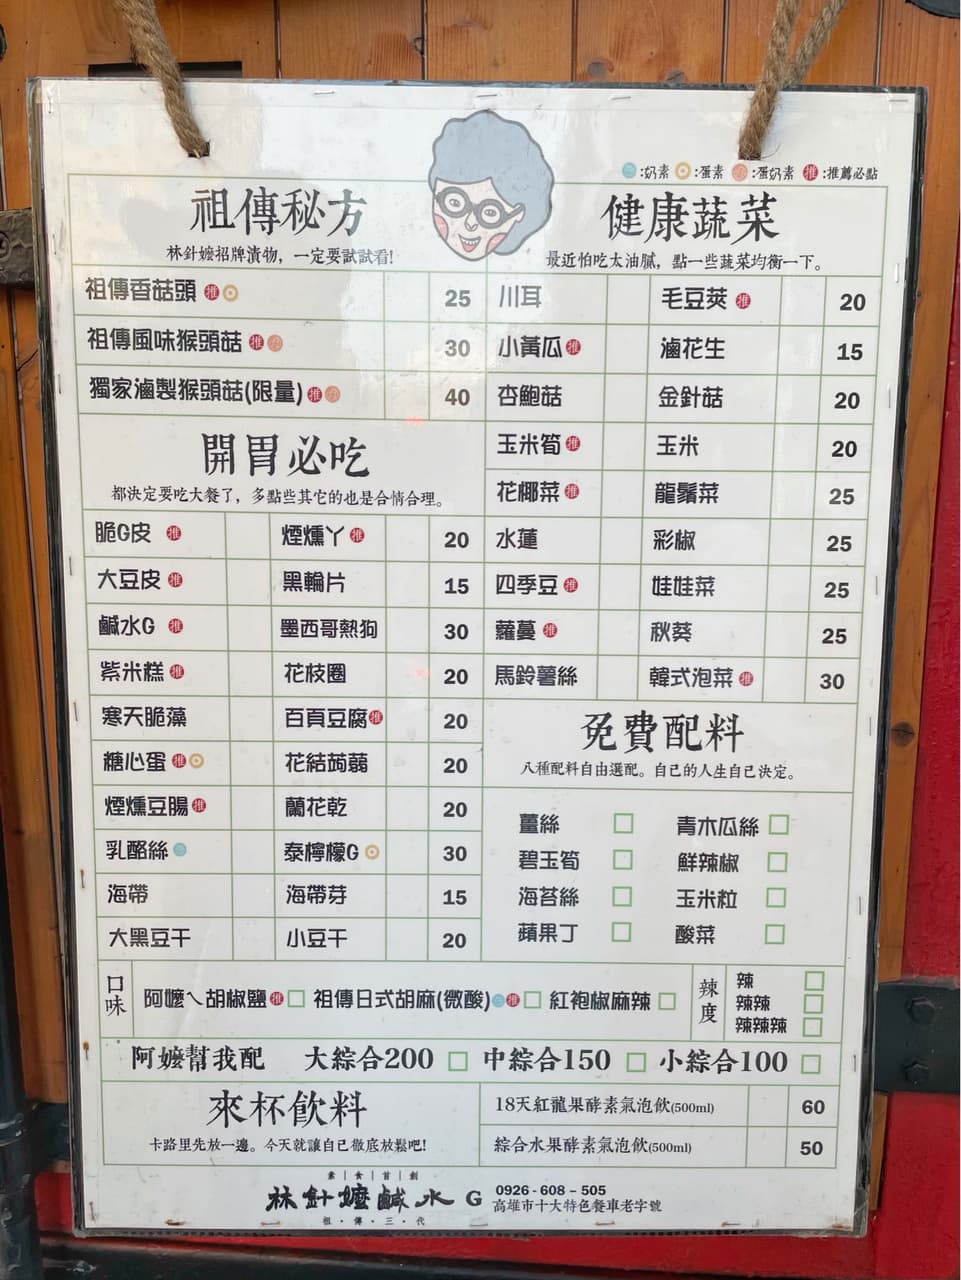 ●:奶素 ●:蛋素 ●:蛋奶素 推:推薦必點
祖傳秘方
林針嬤招牌漬物，一定要試試看!
祖傳香菇頭 推 25
祖傳風味猴頭菇 推 30
獨家滷製猴頭菇(限量) 推 40
開胃必吃
都決定要吃大餐了，多點些其它的也是合情合理。
脆G皮 推 煙燻丫 推 20
大豆皮 推 黑輪片 15
鹹水G 推 墨西哥熱狗 30
紫米糕 推 花枝圈 20
寒天脆藻 百頁豆腐 推 20
糖心蛋 推 花結蒟蒻 20
煙燻豆腸 推 蘭花乾 20
乳酪絲 泰檸檬G 30
海帶 海帶芽 15
大黑豆干 小豆干 20
健康蔬菜
最近怕吃太油膩，點一些蔬菜均衡一下。
川耳 毛豆莢 推 20
小黃瓜 推 滷花生 15
杏鮑菇 金針菇 20
玉米筍 推 玉米 20
花椰菜 推 龍鬚菜 25
水蓮 彩椒 25
四季豆 推 娃娃菜 25
蘿蔓 推 秋葵 25
馬鈴薯絲 韓式泡菜 推 30
免費配料
八種配料自由選配。自己的人生自己決定。
薑絲 □ 青木瓜絲 □
碧玉筍 □ 鮮辣椒 □
海苔絲 □ 玉米粒 □
蘋果丁 □ 酸菜 □
口味 阿嬤ㄟ胡椒鹽 推 □ 祖傳日式胡麻(微酸) 推 □ 紅袍椒麻辣 □
辣度
辣 □
辣辣 □
辣辣辣 □
阿嬤幫我配 大綜合200 □ 中綜合150 □ 小綜合100 □
來杯飲料
卡路里先放一邊。今天就讓自己徹底放鬆吧!
18天紅龍果酵素氣泡飲(500ml) 60
綜合水果酵素氣泡飲(500ml) 50
素｜食｜首｜創
林針嬤鹹水G
祖・傳・三・代
0926-608-505
高雄市十大特色餐車老字號